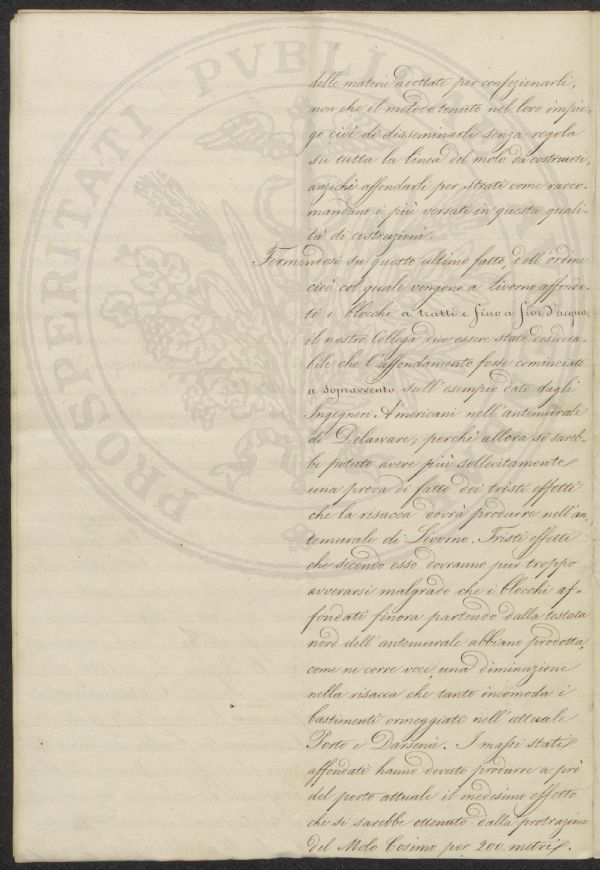 delle materie adottate per confezionarli,
non che il metodo tenuto nel loro impie-
go cioè di disseminarli senza regola
su tutta la linea del molo da costruirsi,
anziché affondarli per strati come racco-
mandano i più versati in questa quali-
tà di costruzioni.
Fermandosi su questo ultimo fatto, dell'ordine
cioè col quale vengono a Livorno affonda-
ti i blocchi a tratti e fino a fior d'acqua,
il nostro Collega dice essere stato desidera-
bile che l'affondamento fosse cominciato
a sopravvento sull'esempio dato dagli
Ingegneri Americani nell'antemurale
di Delaware; perchè allora si sareb-
be potuto avere più sollecitamente
una prova di fatto dei tristi effetti
che la risacca dovrà produrre nell'an-
temurale di Livorno. Tristi effetti
che secondo esso dovranno pur troppo
avverarsi malgrado che i blocchi af-
fondati finora partendo dalla testata
nord dell'antemurale abbiano prodotta,
come ne corre voce, una diminuzione
nella risacca che tanto incomoda i
bastimenti ormeggiati nell'attuale
Porto e Darsena. I massi stati
affondati hanno dovuto produrre a prò
del porto attuale il medesimo effetto
che si sarebbe ottenuto dalla protrazione
del Molo Cosimo per 200 metri.
PROSPERITATI PVBLI